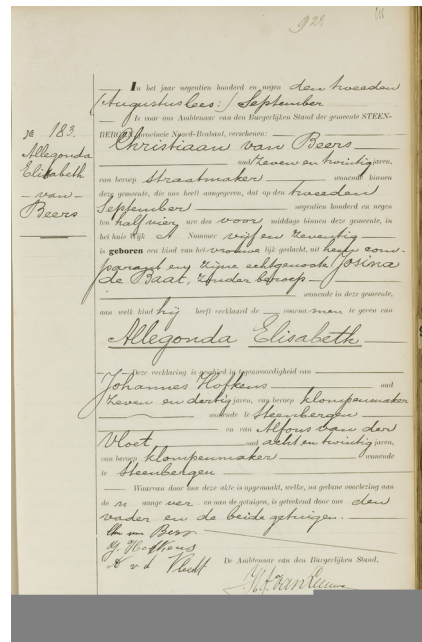 922
In het jaar negentien honderd en negen den tweeden
(Augustus lees:) September
is voor ons Ambtenaar van den Burgerlijken Stand der gemeente STEEN-
BERGEN, provincie Noord-Brabant, verschenen:
Christiaan van Beers
oud zeven en twintig jaren,
van beroep straatmaker wonende binnen
deze gemeente, die ons heeft aangegeven, dat op den tweeden
September negentien honderd en negen
ten half vier ure des voor middags binnen deze gemeente, in
het huis Wijk A Nommer vijf en zeventig
is geboren een kind van het vrouwelijk geslacht, uit hem com-
parant en zijne echtgenoote Josina
de Baat, zonder beroep
wonende in deze gemeente,
aan welk kind hij heeft verklaard de voornamen te geven van
Allegonda Elisabeth
Deze verklaring is geschied in tegenwoordigheid van
Johannes Hofkens oud
zeven en dertig jaren, van beroep klompenmaker
wonende te Steenbergen
en van Alfons van der
Vloet oud acht en twintig jaren,
van beroep klompenmaker wonende
te Steenbergen
Waarvan door ons deze akte is opgemaakt, welke, na gedane voorlezing aan
de n aangever en aan de getuigen, is geteekend door ons den
vader en de beide getuigen.
Chr van Beers
J. Hofkens
A v d Vloet
De Ambtenaar van den Burgerlijken Stand,
No 183.
Allegonda
Elisabeth
- van -
Beers